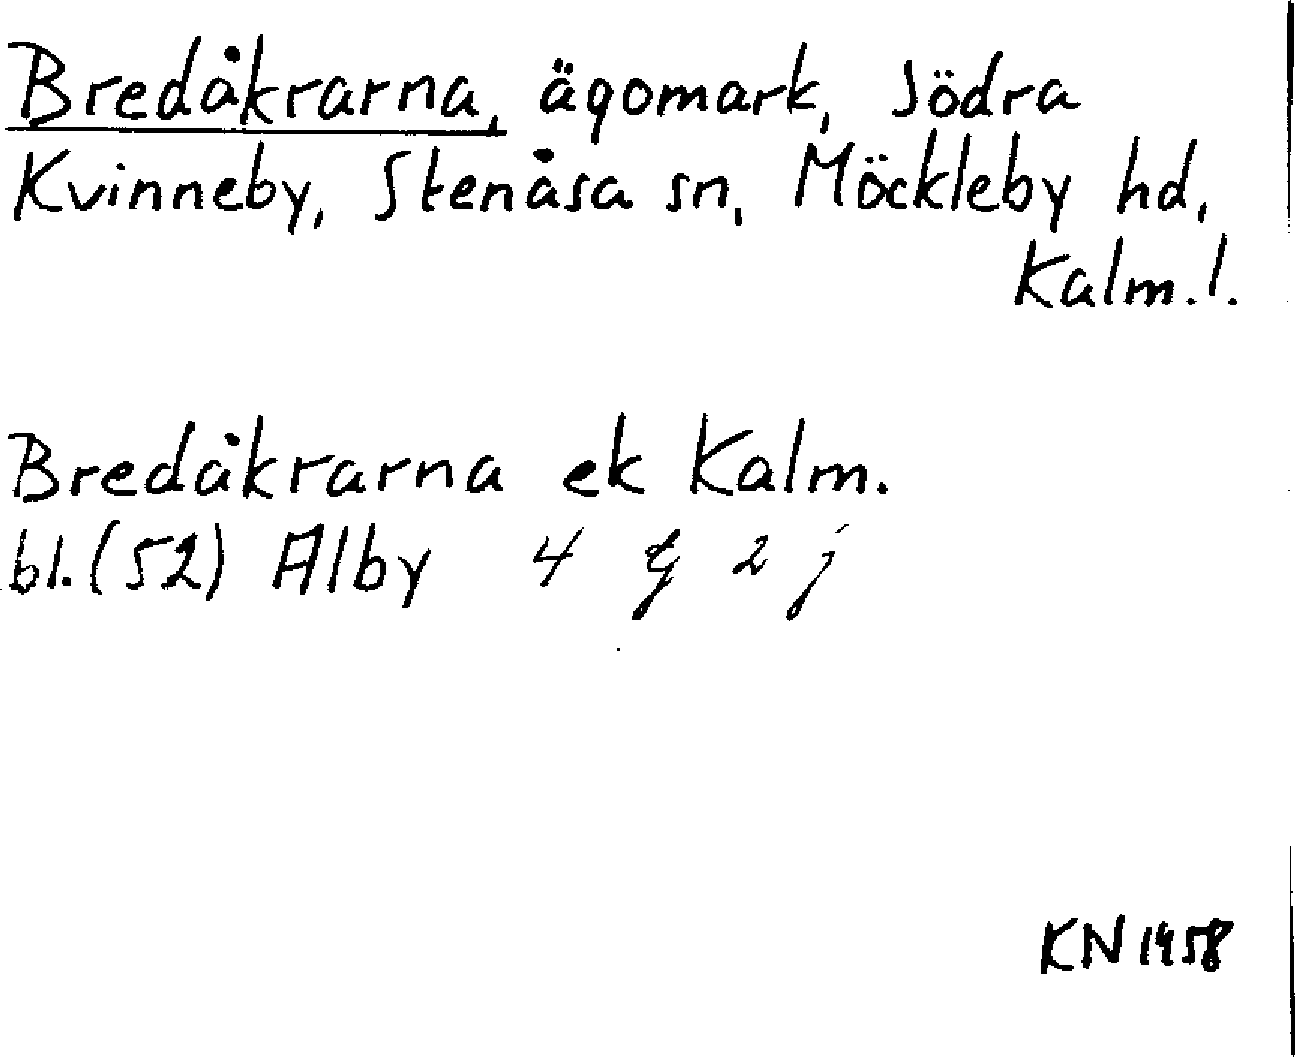 Bredåkrarna, ägomark, Södra
Kvinneby, Stenåsa sn, Möckleby hd,
Kalm. l.
Bredåkrarna ek Kalm.
bl. (52) Alby 4 g 2 j
KN 1958